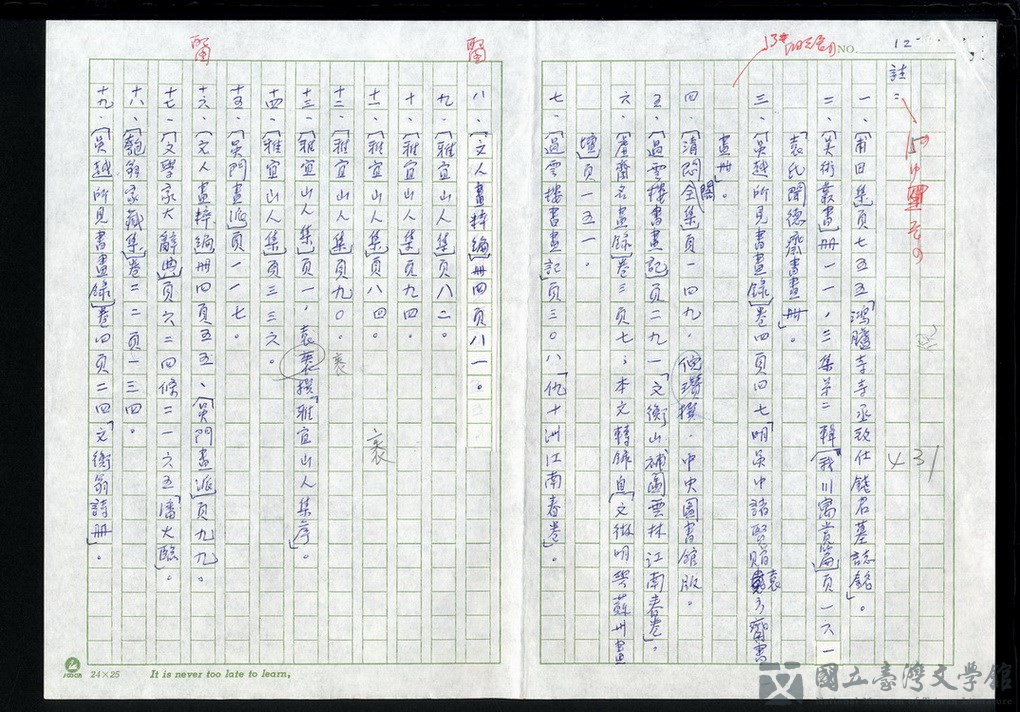 NO. 12
註：
431
一、〔甫田集〕頁七五五「鴻臚寺寺丞致仕錢君墓誌銘」。
二、〔美術叢書〕册一一，三集第二輯〔我川寓賞篇〕頁一六一
袁氏聞德齋書畫册」。
三、〔吳越所見書畫錄〕卷四頁四七「明吳中諸賢贈袁方齋書
畫册」。
四、〔清閟閣全集〕頁一四九，倪瓚撰．中央圖書館版。
五、〔過雲樓書畫記〕頁二九一「文衡山補圖雲林江南春卷」。
六、〔廬齋名畫錄〕卷三頁七；本文轉錄自〔文徵明與蘇州畫
壇〕頁一五一。
七、〔過雲樓書畫記〕頁三〇八「仇十洲江南春卷」。
八、〔文人畫粹編〕册四頁八一。
九、〔雅宜山人集〕頁八二。
十、〔雅宜山人集〕頁九四。
十一、〔雅宜山人集〕頁八四。
十二、〔雅宜山人集〕頁九〇。
十三、〔雅宜山人集〕頁一，袁袠撰「雅宜山人集序」。
十四、〔雅宜山人集〕頁三三六。
十五、〔吳門畫派〕頁一一七。
十六、〔文人畫粹編〕册四頁五五、〔吳門畫派〕頁九九。
十七、〔文學家大辭典〕頁六二四條二一六五「潘大臨」。
十八、〔匏翁家藏集〕卷二二頁一三四。
十九、〔吳越所見書畫錄〕卷四頁二四「文衡翁詩册」。
24×25 It is never too late to learn.
國立臺灣文學館